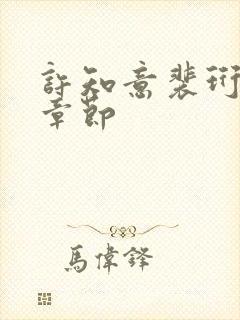 許知意裴珩
章節
馬偉鐸